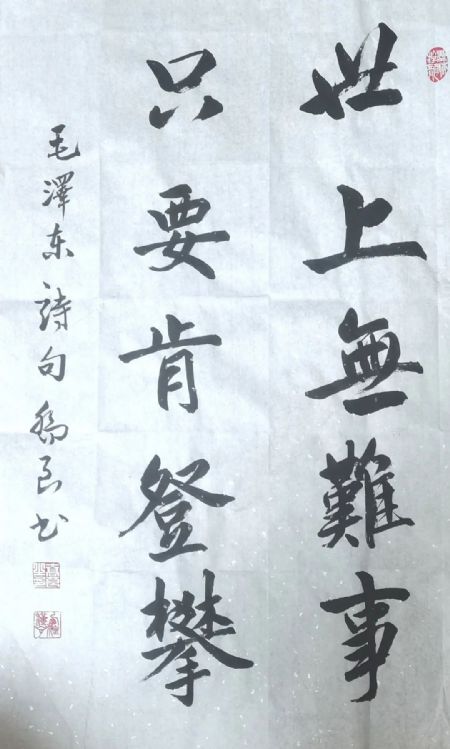 世上無難事
只要肯登攀
毛澤东詩句